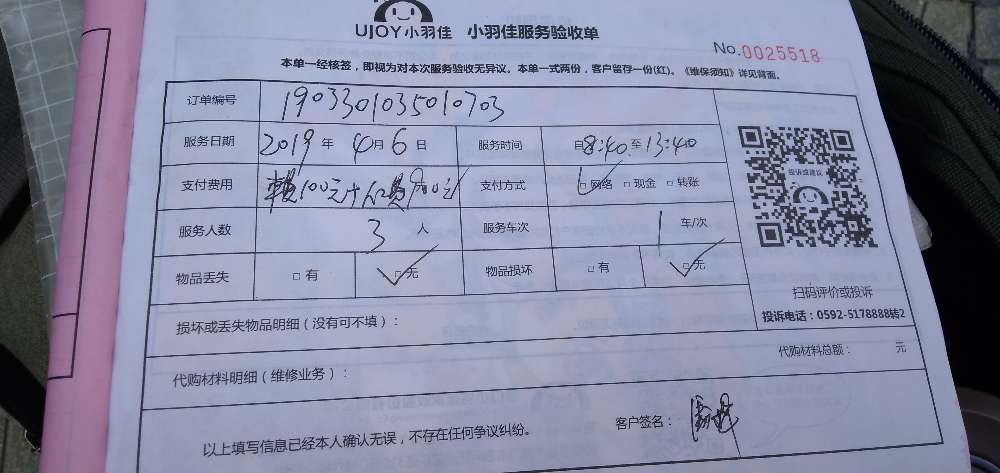 UJOY小羽佳 小羽佳服务验收单
No.0025518
本单一经核签，即视为对本次服务验收无异议。本单一式两份，客户留存一份(红)。《维保须知》详见背面。
订单编号 1903301035010703
服务日期 2019年 4月 6日 服务时间 自8:40至13:40
支付费用 100元+人费 支付方式 □网络 □现金 □转账
服务人数 3 人 服务车次 1 车/次
物品丢失 □有 □无 物品损坏 □有 □无
投诉或建议
扫码评价或投诉
投诉电话：0592-5178888转2
损坏或丢失物品明细（没有可不填）：
代购材料明细（维修业务）： 代购材料总额： 元
以上填写信息已经本人确认无误，不存在任何争议纠纷。 客户签名：